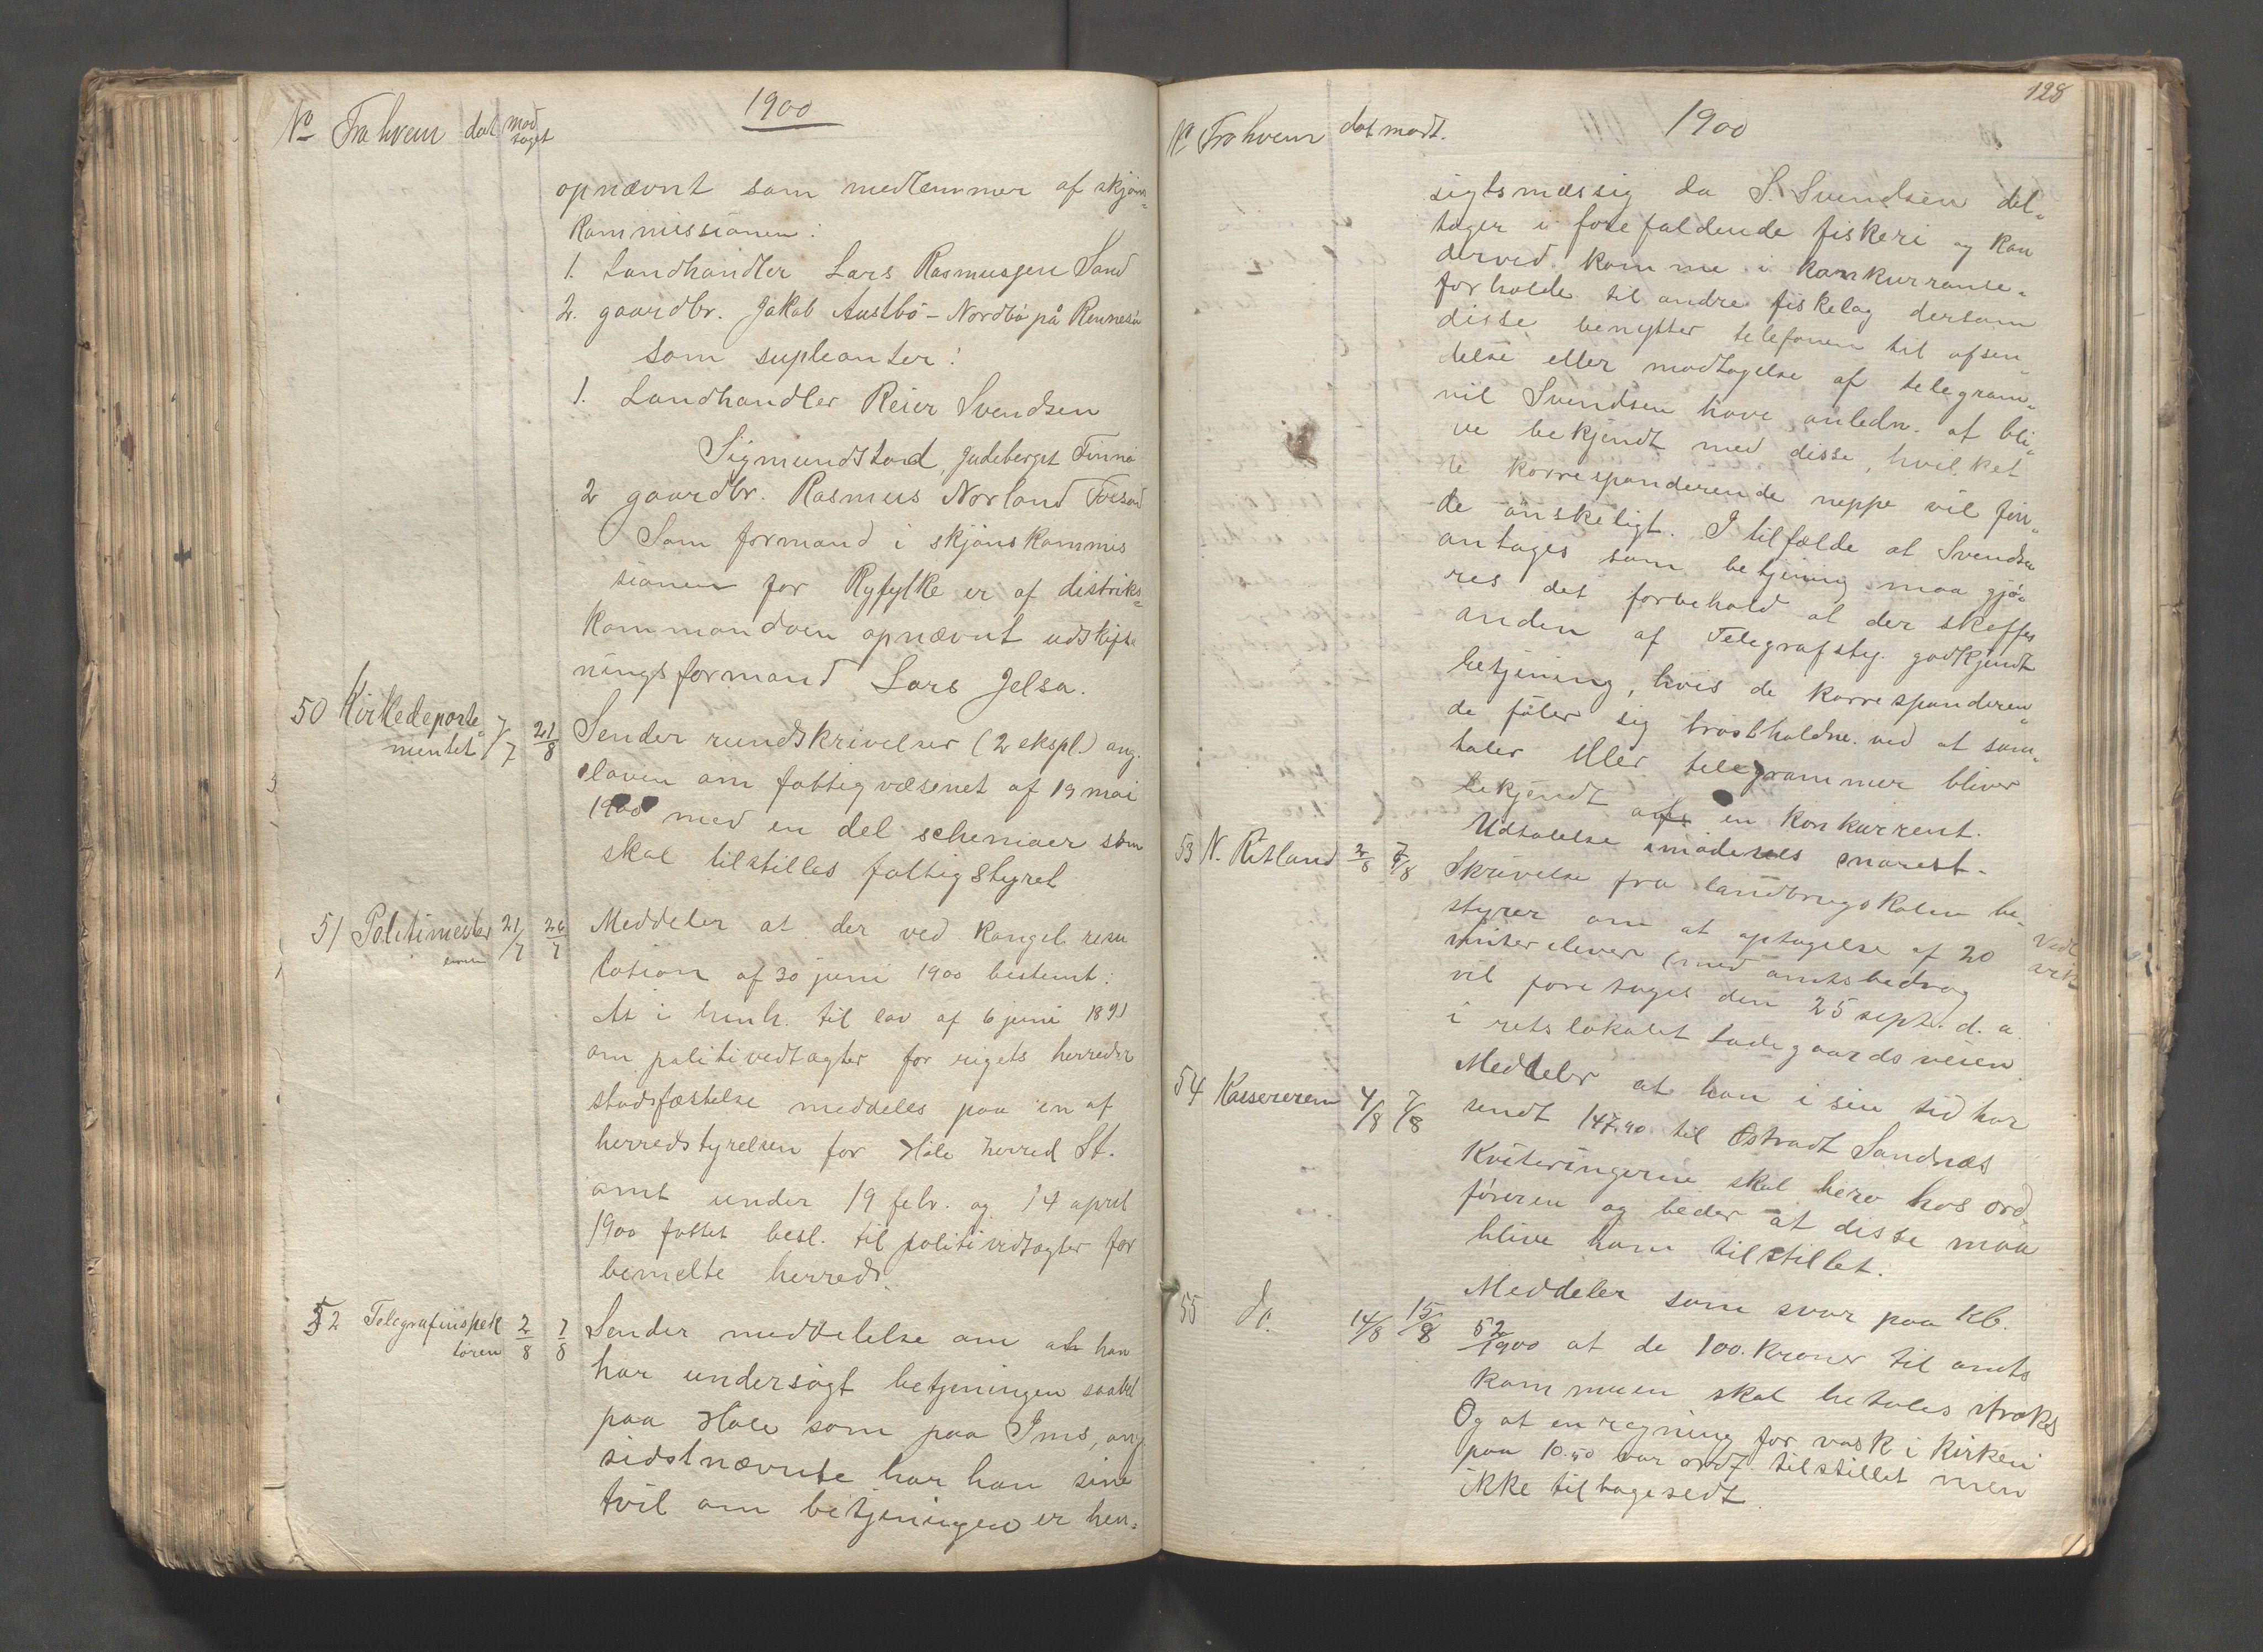 1900
No Fra hvem dat mod
taget
opnævnt som medlemmer af skjøns-
kommissionen:
1. Landhandler Lars Rasmussen Sand
2. gaardbr. Jakob Austbö - Nordbö på Rennesö
som supleanter:
1. Landhandler Reier Svendsen
Sigmundstad, Judeberget Finnö
2 gaardbr. Rasmus Norland Forsand
Som formand i skjönskommis
sionen for Ryfylke er af distrikts-
kommandoen opnævnt udskift
ningsformand Lars Jelsa.
50 Kirkedeparte-
mentet 7/7 21/8 Sender rundskrivelser (2 ekspl.) ang.
loven om fattigvæsenet af 19 mai
1900 med en del schemaer som
skal tilstilles fattigstyret
51 Politimester
emm 21/7 26/7 Meddeler at der ved kongel. reso
lotion af 30 juni 1900 bestemt:
At i henh. til lov af 6 juni 1891
om politivedtægter for rigets herreder
stadsfæstelse meddeles paa en af
herredstyrelsen for Hole herred St.
amt under 19 febr. og 14 april
1900 fattet besl. til politividtægter for
bemelte herred.
52 Telegrafinspek
tören 2/8 7/8 Sender meddelelse om at han
har undersögt betjeningen saavel
paa Hole som paa Ims, ang.
sidstnævnte har han sine
tvil om betjeningen er hen-
128
No Fra hvem dat modt.
1900
sigtsmæssig da S. Svendsen del-
tager i forefaldende fiskeri og kan
derved komme i konkurranse-
forholde til andre fiskelag dersom
disse benytter telefonen til afsen
delse eller modtagelse af telegram-
vil Svendsen have anledn. at bli-
ve bekjendt med disse, hvilket
de korresponderende neppe vil fin-
de önskeligt. I tilfælde at Svendsen
antages som betjening maa gjö-
res det forbehold at der skaffes
anden af Telegrafsty. godkjendt
betjening, hvis de korresponderen-
de föler sig brostholdne ved at sam-
taler eller telegrammer bliver
bekjendt af en konkurrent.
Udtalelse imödesees snarest.
53 N. Retland 2/8 7/8 Skrivelse fra landbrugskolen be-
styrer om at optagelse af 20
vinter elever (med amtsbedrag
vil foretages den 25 sept. d. a.
i retslokalet Ladegaardsveien.
54 Kassereren 4/8 7/8 Meddeler at han i sin tid har
sendt 147,90 til Östradt Sandnæs
Kviteringerne skal bero hos ord-
föreren og beder at disse maa
blive ham tilstillet.
55 do. 14/8 15/8 Meddeler som svar paa Kb.
52/1900 at de 100. kroner til amts
kommuen skal betales straks
Og at en regning for vask i kirken
paa 10.50 var ordf. tilstillet men
ikke tilbagesedt.